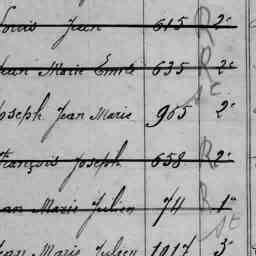 Louis Jean 615 R 2e
Jean Marie Emile 635 R 2e
Joseph Jean Marie 905 sc 2e
François Joseph 658 R 2e
Jean Marie Julien 711 R 1e
Jean Marie Julien 1017 sc 3e